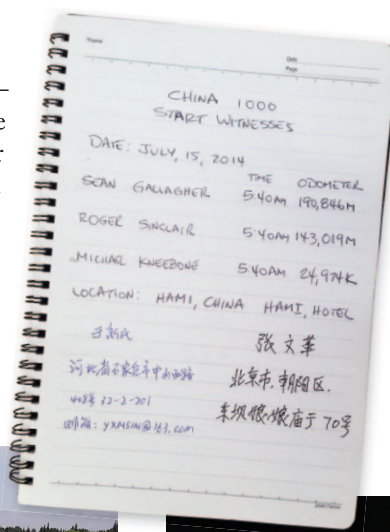 Theme
Date
Page
CHINA 1000
START WITNESSES
DATE: JULY, 15, 2014
TIME ODOMETER
SEAN GALLAGHER 5:40AM 190,846M
ROGER SINCLAIR 5:40AM 143,019M
MICHAEL KNEEBONE 5:40AM 24,974K
LOCATION: HAMI, CHINA HAMI, HOTEL
于新民
河北省石家庄市中山西路
号 32-2-201
邮箱: YXMSIN@163.com
张文革
北京市.朝阳区.
东坝娘娘庙于70号